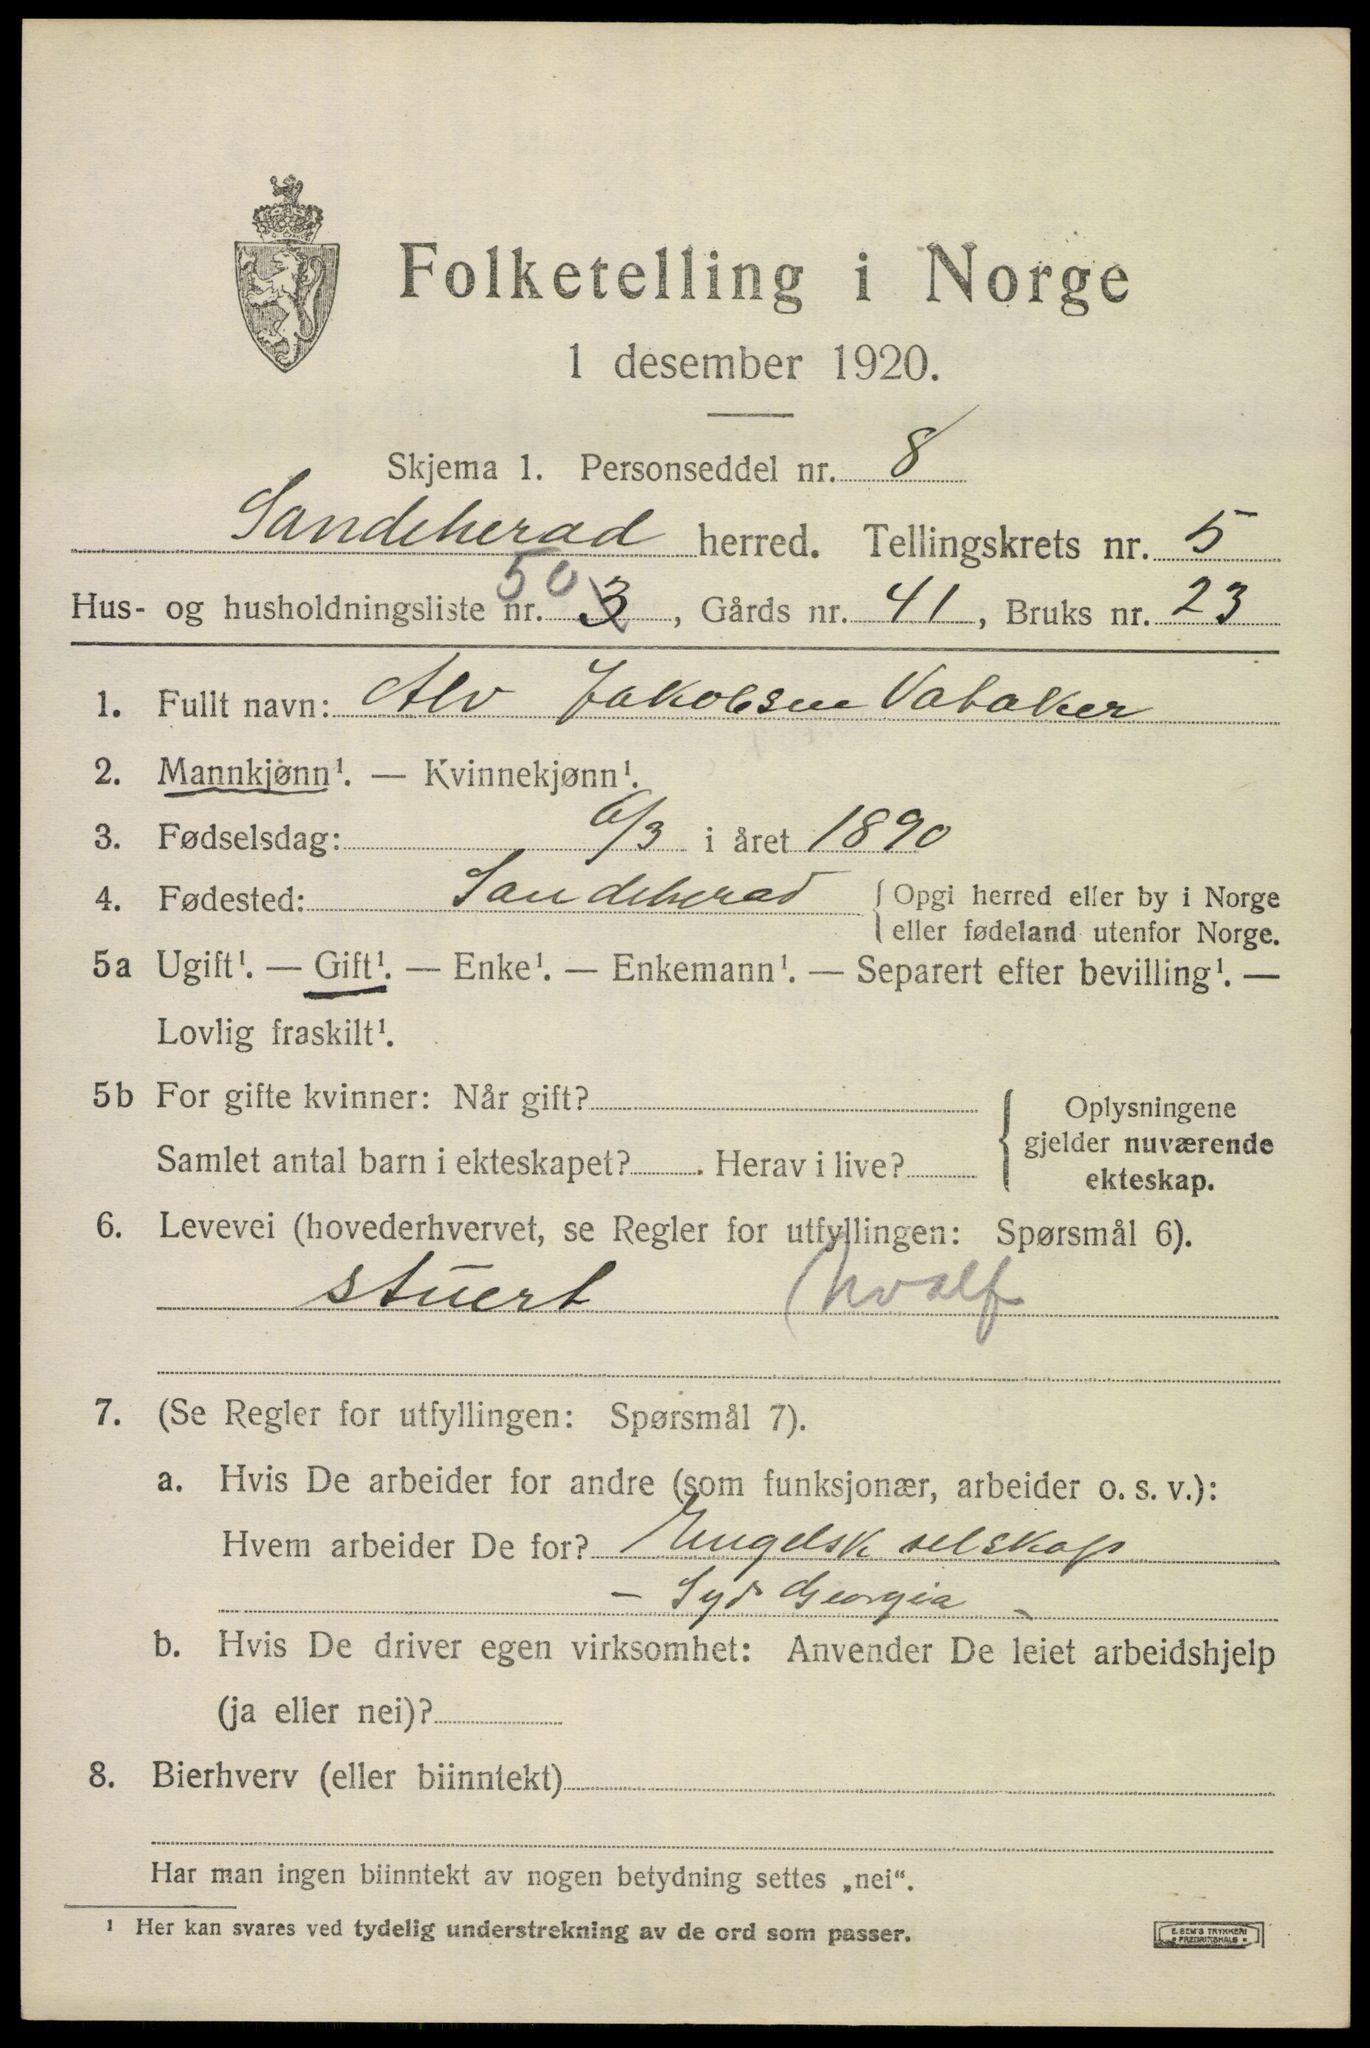 Folketelling i Norge
1 desember 1920.
Skjema 1. Personseddel nr. 8
Sandeherad herred. Tellingskrets nr. 5
Hus- og husholdningsliste nr. 50 3, Gårds nr. 41, Bruks nr. 23
1. Fullt navn: Alv Jakobsen Vataker
2. Mannkjønn¹. — Kvinnekjønn¹.
3. Fødselsdag: 6/3 i året 1890
4. Fødested: Sandeherad { Opgi herred eller by i Norge
eller fødeland utenfor Norge.
5a Ugift¹. — Gift¹. — Enke¹. — Enkemann¹. — Separert efter bevilling¹. —
Lovlig fraskilt¹.
5b For gifte kvinner: Når gift?
Samlet antal barn i ekteskapet? . Herav i live?
{ Oplysningene
gjelder nuværende
ekteskap.
6. Levevei (hovederhvervet, se Regler for utfyllingen: Spørsmål 6).
stuert (hvalf
7. (Se Regler for utfyllingen: Spørsmål 7).
a. Hvis De arbeider for andre (som funksjonær, arbeider o. s. v.):
Hvem arbeider De for? Engelsk selskap
- Syd Georgia -
b. Hvis De driver egen virksomhet: Anvender De leiet arbeidshjelp
(ja eller nei)?
8. Bierhverv (eller biinntekt)
Har man ingen biinntekt av nogen betydning settes „nei“.
¹ Her kan svares ved tydelig understrekning av de ord som passer.
E. SEM'S TRYKKERI
FREDRIKSHALD